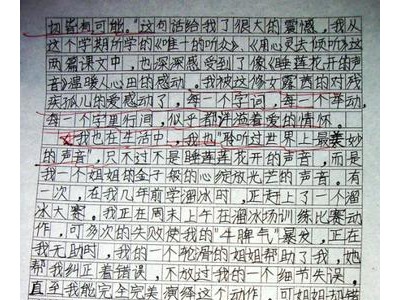 切皆有可能。”这句话给我了很大的震憾，我从
这个学期所学的《唯一的听众》、《用心灵去倾听》这
两篇课文中，也深深感受到了像《睡莲花开的声
音》温暖人心田的感动。我被这修女露茜的对残
疾孤儿的爱感动了，每一个字词，每一个举动，
每一个字里行间，似乎都洋溢着爱的情怀。
我也在生活中，我也“聆听过世界上最美妙
的声音”，只不过不是睡莲花开的声音，而是
我一个姐姐的金子般的心绽放光芒的声音。有
一次，在我几年前学溜冰时，正赶上了一个溜
冰大赛。我正在周末上午在溜冰场训练比赛动
作，可多次的失败使我的“牛脾气”暴发，正在
我无助时，我的一个轮滑的姐姐帮助了我，她
帮我纠正着错误，不放过我的一个细节失误，
直至我能完全完美演绎这个动作，可姐姐却错